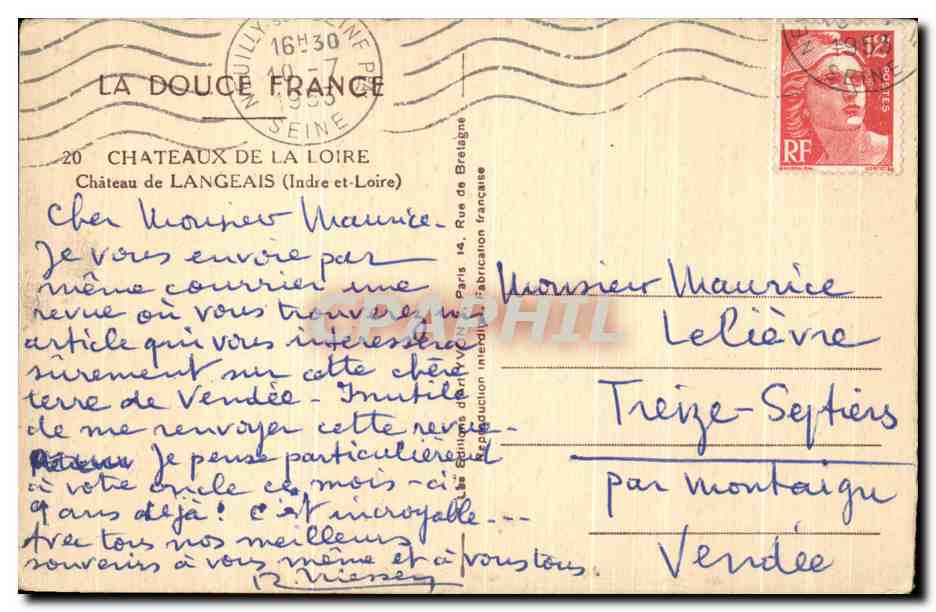 LA DOUCE FRANCE
20 CHATEAUX DE LA LOIRE
Château de LANGEAIS (Indre-et-Loire)
NEUILLY-SUR-SEINE PPAL
16H30
10 -7
1953
SEINE
12
POSTES
RF
1953
SEINE
Cher Monsieur Maurice.
Je vous envoie par
même courrier une
revue où vous trouverez un
article qui vous intéressera
sûrement sur cette chère
terre de Vendée - Inutile
de me renvoyer cette revue -
Je pense particulièrement
à votre oncle ce mois-ci
9 ans déjà ! c'est incroyable ---
Avec tous nos meilleurs
souvenirs à vous même et à vous tous.
Les Editions d'art YVON, Paris 14, Rue de Bretagne
Reproduction interdite Fabrication française
Monsieur Maurice
Lelièvre
Treize-Septiers
par Montaigu
Vendée
CPAPHIL